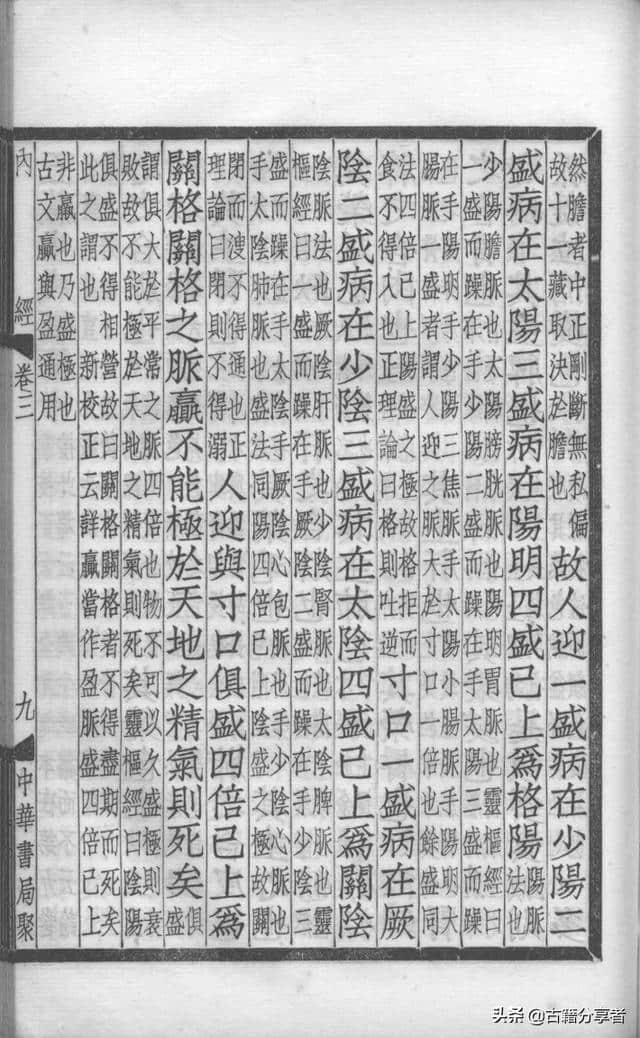 然膽者中正剛斷無私偏
故十一藏取決於膽也
故人迎一盛病在少陽二
盛病在太陽三盛病在陽明四盛已上爲格陽
陽脈
法也
少陽膽脈也太陽膀胱脈也陽明胃脈也靈樞經曰
一盛而躁在手少陽二盛而躁在手太陽三盛而躁
在手陽明手少陽三焦脈手太陽小腸脈手陽明大
腸脈一盛者謂人迎之脈大於寸口一倍也餘盛同
法四倍已上陽盛之極故格拒而
食不得入也正理論曰格則吐逆
寸口一盛病在厥
陰二盛病在少陰三盛病在太陰四盛已上爲關陰
陰脈法也厥陰肝脈也少陰腎脈也太陰脾脈也靈
樞經曰一盛而躁在手厥陰二盛而躁在手少陰三
盛而躁在手太陰手厥陰心包脈也手少陰心脈也
手太陰肺脈也盛法同陽四倍已上陰盛之極故關
閉而溲不得通也正
理論曰閉則不得溺
人迎與寸口俱盛四倍已上爲
關格關格之脈贏不能極於天地之精氣則死矣
俱
盛
謂俱大於平常之脈四倍也物不可以久盛極則衰
敗故不能極於天地之精氣則死矣靈樞經曰陰陽
俱盛不得相營故曰關格關格者不得盡期而死矣
此之謂也 新校正云詳贏當作盈脈盛四倍已上
非贏也乃盛極也
古文贏與盈通用
內 經 卷三 九 中華書局聚
头条 @古籍分享者